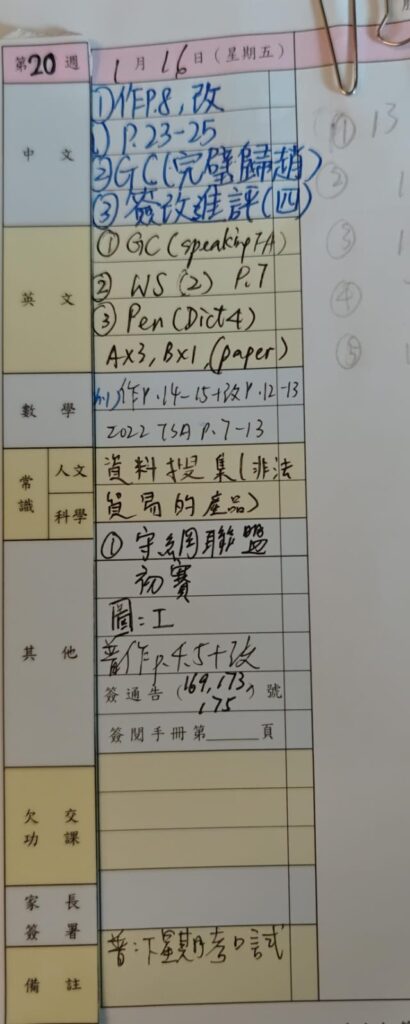 第20週 1月16日(星期五)
中文
①作P.8,改
① P.23-25
②GC(完璧歸趙)
③簽改進評(四)
英文
① GC (speaking TA)
② WS (2) P.7
③ Pen (Dict 4)
A×3, B×1 (paper)
數學
作P.14-15+改P.12-13
2022 TSA P.7-13
常識 人文 科學
資料搜集(非法
貿易的產品)
其他
① 守網聯盟
初賽
圖:工
普作p.4.5+改
簽通告(169,173,175)號
簽閱手冊第____頁
欠交功課
家長簽署
備註
普:下星期考口試
① 13
②
③
④
⑤